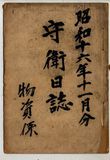 昭和十六年十一月分
守衛日誌
物資係